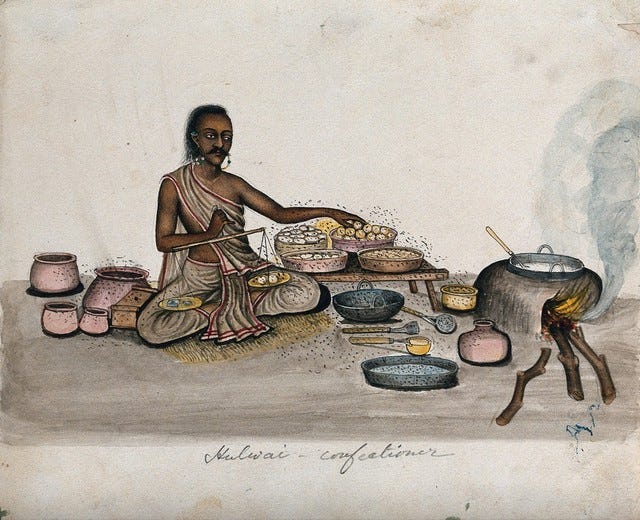 Hulwai - confectioner